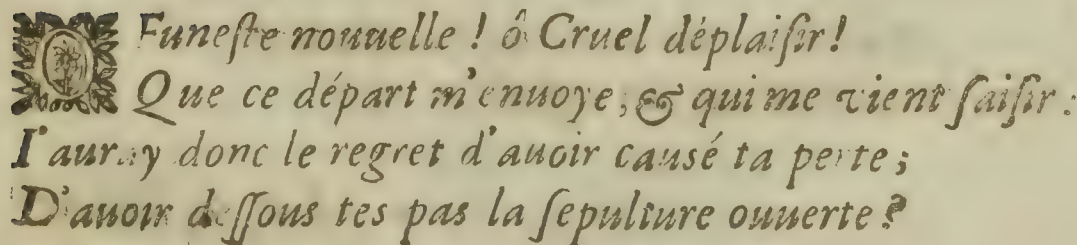 O Funeſte nouuelle ! ô Cruel déplaiſir !
Que ce départ m'enuoye, & qui me vient ſaiſir :
I'auray donc le regret d'auoir cauſé ta perte ;
D'auoir deſſous tes pas la ſepulture ouuerte ?